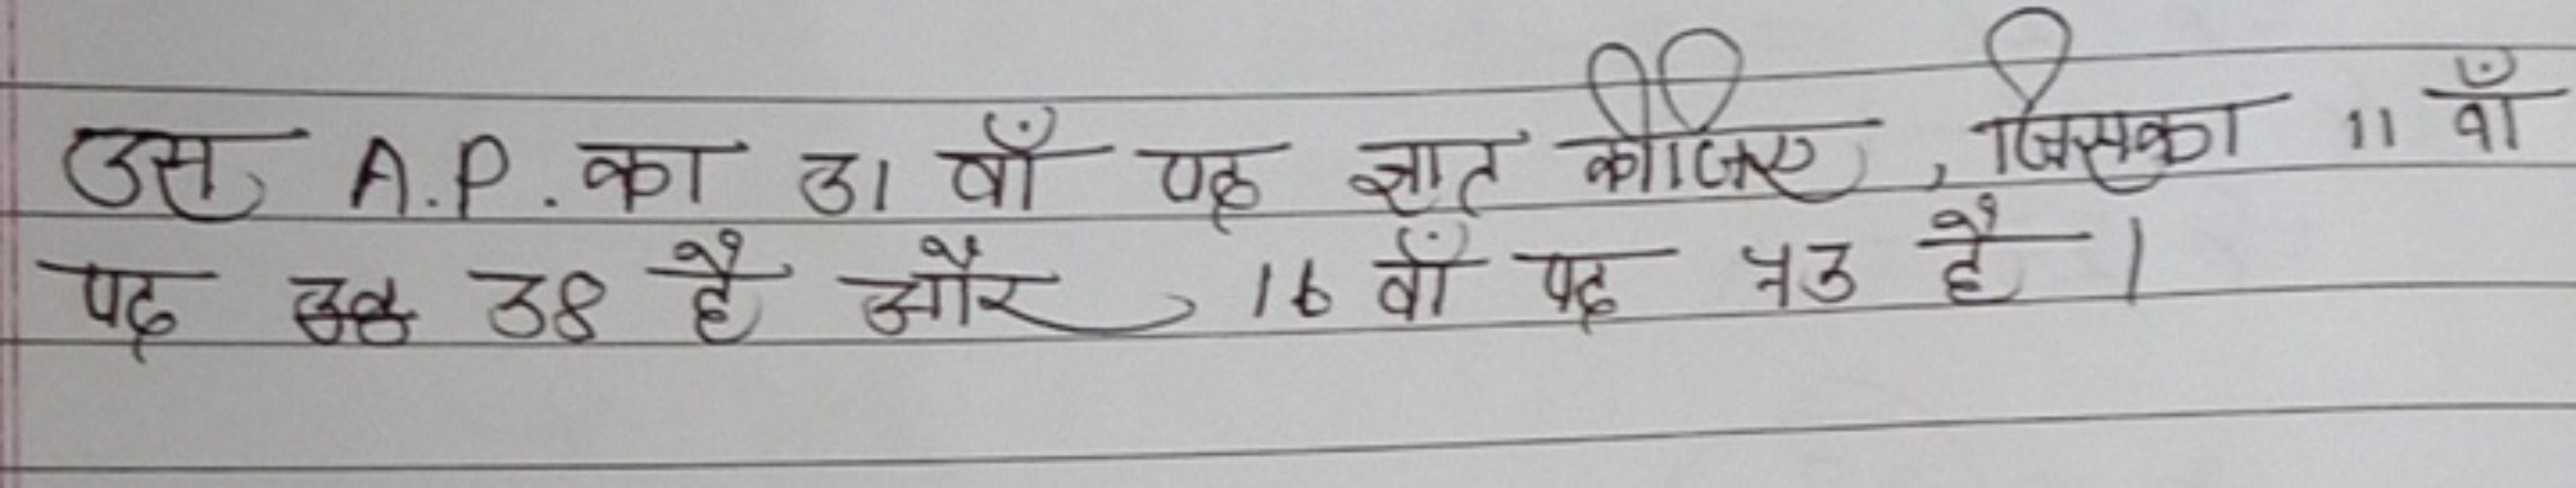 उस A.P. का 31 वाँ पद ज्ञात कीजिए, जिसका 11 वाँ
पद 38 है और 16 वाँ पद 73 है।